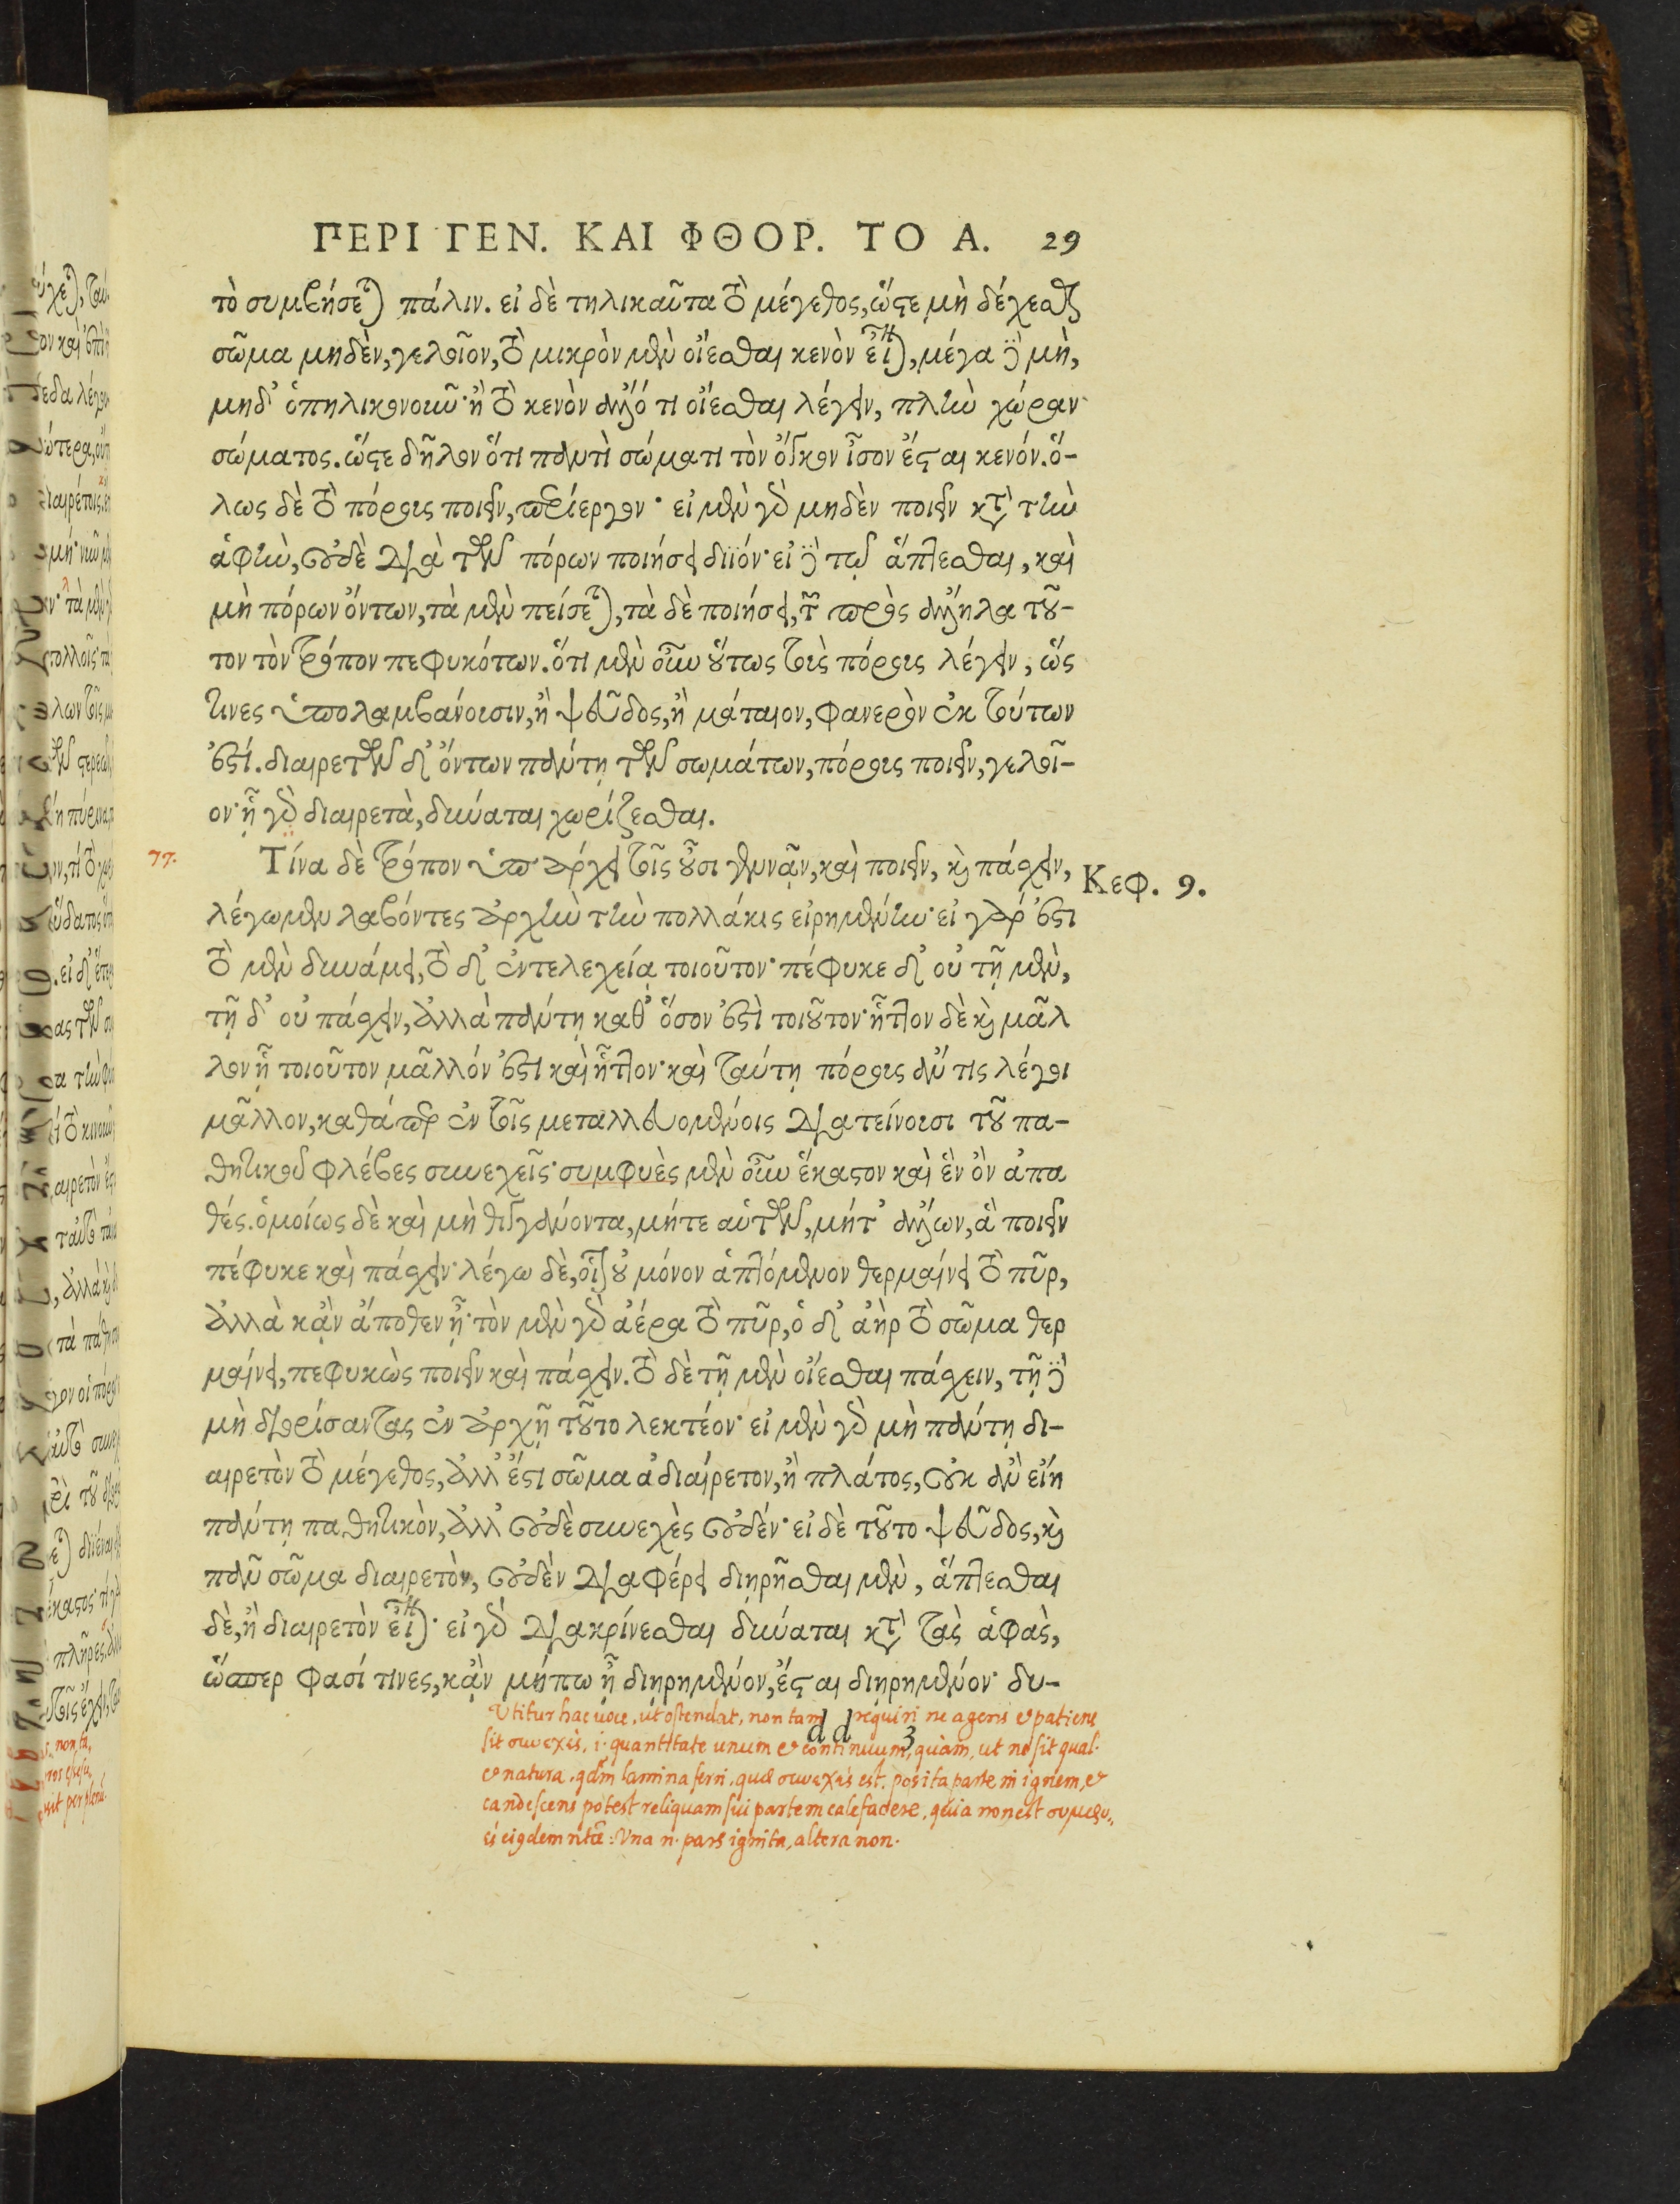 ΠΕΡΙ ΓΕΝ. ΚΑΙ ΦΘΟΡ. ΤΟ Α. 29
τὸ συμβήσεται πάλιν. εἰ δὲ τηλικαῦτα τὸ μέγεθος, ὥστε μὴ δέχεσθαι
σῶμα μηδὲν, γελοῖον, τὸ μικρὸν μὲν οἴεσθαι κενὸν εἶναι, μέγα δὲ μὴ,
μηδ' ὁπηλικονοῦν· ἢ τὸ κενὸν ἄλλό τι οἴεσθαι λέγειν, πλὴν χώραν
σώματος. ὥστε δῆλον ὅτι παντὶ σώματι τὸν ὄγκον ἶσον ἔσται κενόν. ὅ-
λως δὲ τὸ πόρους ποιεῖν, περίεργον· εἰ μὲν γὰρ μηδὲν ποιεῖν κατὰ τὴν
ἁφὴν, οὐδὲ διὰ τῶν πόρων ποιήσει διϊόν· εἰ δὲ τῷ ἅπτεσθαι, καὶ
μὴ πόρων ὄντων, τὰ μὲν πείσεται, τὰ δὲ ποιήσει, τῶν πρὸς ἄλληλα τοῦ-
τον τὸν τρόπον πεφυκότων. ὅτι μὲν οὖν οὕτως τοὺς πόρους λέγειν, ὥς
τινες ὑπολαμβάνουσιν, ἢ ψεῦδος, ἢ μάταιον, φανερὸν ἐκ τούτων
ἐστί. διαιρετῶν δ' ὄντων πάντῃ τῶν σωμάτων, πόρους ποιεῖν, γελοῖ-
ον· ᾗ γὰρ διαιρετὰ, δύναται χωρίζεσθαι.
77. Τίνα δὲ τρόπον ὑπάρχει τοῖς οὖσι γεννᾷν, καὶ ποιεῖν, καὶ πάσχειν, Κεφ. 9.
λέγωμεν λαβόντες ἀρχὴν τὴν πολλάκις εἰρημένην· εἰ γάρ ἐστι
τὸ μὲν δυνάμει, τὸ δ' ἐντελεχείᾳ τοιοῦτον· πέφυκε δ' οὐ τῇ μὲν,
τῇ δ' οὐ πάσχειν, ἀλλὰ πάντῃ καθ' ὅσον ἐστὶ τοιοῦτον· ἧττον δὲ καὶ μᾶλ
λον ᾗ τοιοῦτον μᾶλλόν ἐστι καὶ ἧττον· καὶ ταύτῃ πόρους ἄν τις λέγοι
μᾶλλον, καθάπερ ἐν τοῖς μεταλλευομένοις διατείνουσι τοῦ πα-
θητικοῦ φλέβες συνεχεῖς· συμφυὲς μὲν οὖν ἕκαστον καὶ ἓν ὂν ἀπα
θές. ὁμοίως δὲ καὶ μὴ θιγγάνοντα, μήτε αὑτῶν, μήτ' ἄλλων, ἃ ποιεῖν
πέφυκε καὶ πάσχειν· λέγω δὲ, οἷον οὐ μόνον ἁπτόμενον θερμαίνει τὸ πῦρ,
ἀλλὰ κἂν ἄποθεν ᾖ· τὸν μὲν γὰρ ἀέρα τὸ πῦρ, ὁ δ' ἀὴρ τὸ σῶμα θερ
μαίνει, πεφυκὼς ποιεῖν καὶ πάσχειν. τὸ δὲ τῇ μὲν οἴεσθαι πάσχειν, τῇ δὲ
μὴ διορίσαντας ἐν ἀρχῇ τοῦτο λεκτέον· εἰ μὲν γὰρ μὴ πάντῃ δι-
αιρετὸν τὸ μέγεθος, ἀλλ' ἔστι σῶμα ἀδιαίρετον, ἢ πλάτος, οὐκ ἂν εἴη
πάντῃ παθητικὸν, ἀλλ' οὐδὲ συνεχὲς οὐδέν· εἰ δὲ τοῦτο ψεῦδος, καὶ
πᾶν σῶμα διαιρετὸν, οὐδὲν διαφέρει διῃρῆσθαι μὲν, ἅπτεσθαι
δὲ, ἢ διαιρετὸν εἶναι· εἰ γὰρ διακρίνεσθαι δύναται κατὰ τὰς ἁφὰς,
ὥσπερ φασί τινες, κἂν μήπω ᾖ διῃρημένον, ἔσται διῃρημένον· δυ-
dd 3
Utitur hac uoce, ut ostendat, non tam requiri ne agens & patiens
sit συνεχὲς, i. quantitate unum & continuum, quàm, ut nō sit qual.
& natura. qdm̄ lamina ferri, quæ συνεχὲς est, posita parte in ignem, &
candescens potest reliquam sui partem calefacere, quia non est συμφυ,
una n. pars ignita, altera non.